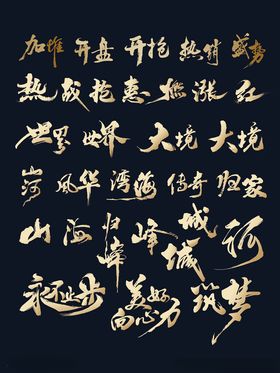 加推 开盘 开抢 热销 盛势
热战 抢惠 燃 涨 红
世界 世界 大境 大境
山河 风华 湾海 传奇 归家
山 海 归峰 峰 城 城 河
永不止步 美好 向心力 筑梦